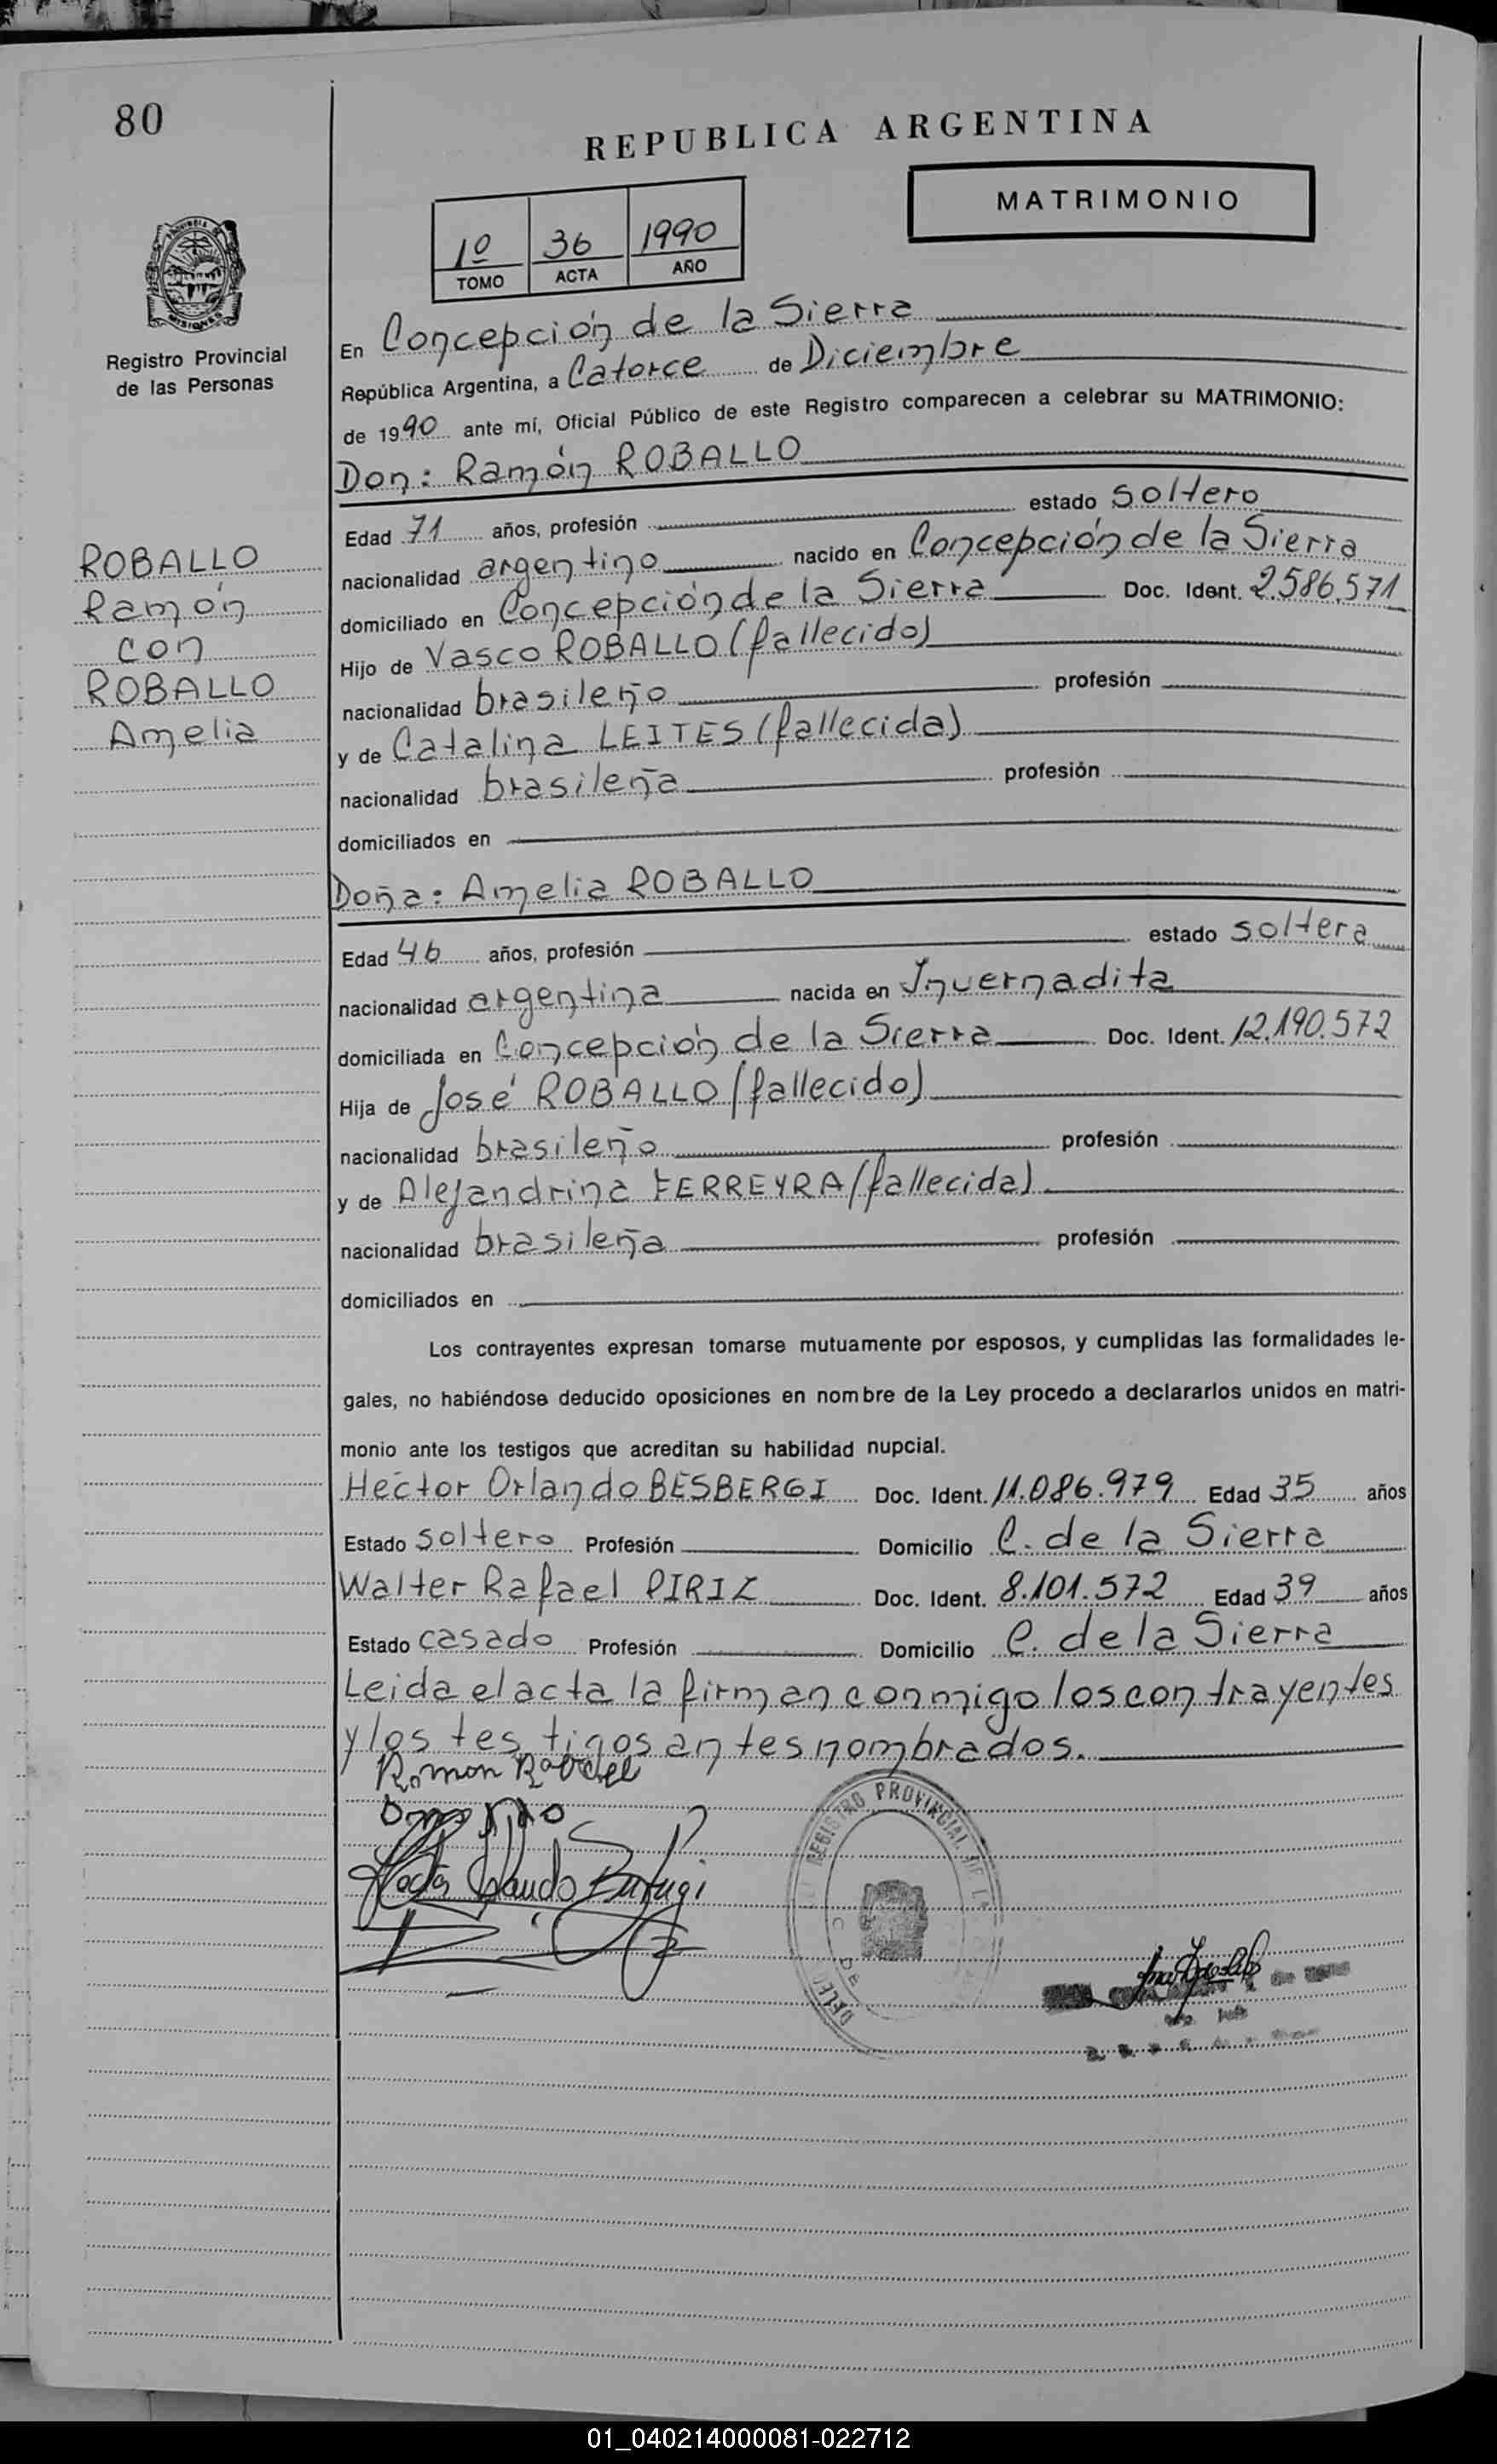 80
REPUBLICA ARGENTINA
MATRIMONIO
1º 36 1990
TOMO ACTA AÑO
PROVINCIA DE
MISIONES
Registro Provincial
de las Personas
ROBALLO
Ramón
con
ROBALLO
Amelia
En Concepción de la Sierra
República Argentina, a Catorce de Diciembre
de 1990 ante mí, Oficial Público de este Registro comparecen a celebrar su MATRIMONIO:
Don: Ramón ROBALLO
Edad 71 años, profesión estado soltero
nacionalidad argentino nacido en Concepción de la Sierra
domiciliado en Concepción de la Sierra Doc. Ident. 2.586.571
Hijo de Vasco ROBALLO (fallecido)
nacionalidad brasileño profesión
y de Catalina LEITES (fallecida)
nacionalidad brasileña profesión
domiciliados en
Doña: Amelia ROBALLO
Edad 46 años, profesión estado soltera
nacionalidad argentina nacida en Invernadita
domiciliada en Concepción de la Sierra Doc. Ident. 12.190.572
Hija de José ROBALLO (fallecido)
nacionalidad brasileño profesión
y de Alejandrina FERREYRA (fallecida)
nacionalidad brasileña profesión
domiciliados en
Los contrayentes expresan tomarse mutuamente por esposos, y cumplidas las formalidades le-
gales, no habiéndose deducido oposiciones en nombre de la Ley procedo a declararlos unidos en matri-
monio ante los testigos que acreditan su habilidad nupcial.
Héctor Orlando BESBERGI Doc. Ident. 11.086.979 Edad 35 años
Estado soltero Profesión Domicilio C. de la Sierra
Walter Rafael PIRIZ Doc. Ident. 8.101.572 Edad 39 años
Estado casado Profesión Domicilio C. de la Sierra
Leida el acta la firman conmigo los contrayentes
y los testigos antes nombrados.
Romon
REGISTRO PROVINCIAL DE LA
01_040214000081-022712